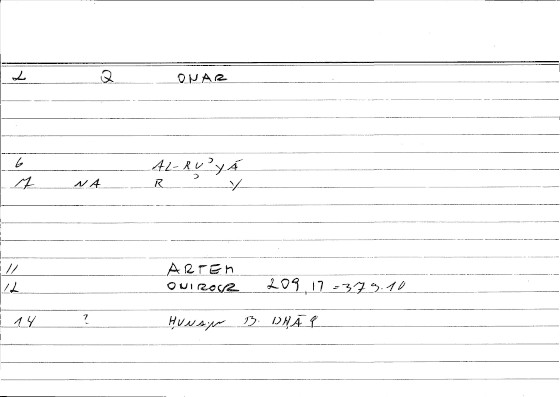 2 Q ONAR
6 AL-RUʾYĀ
7 NA R ʾ Y
11 ARTEM
12 ONIROCR 209,17 = 379.10
14 ? HUNAYN B. ISHĀQ